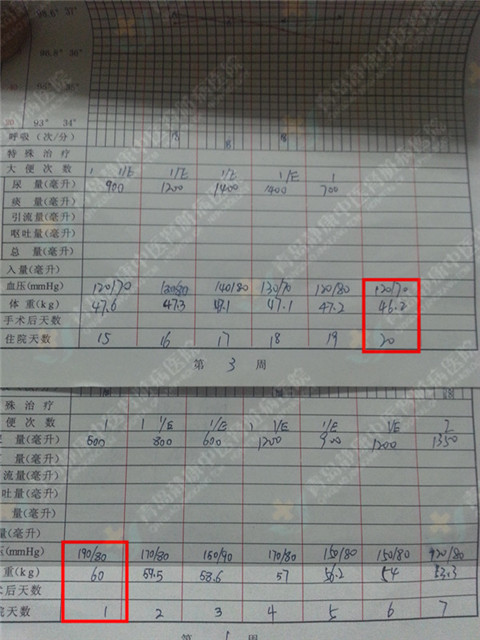 95.6° 31°
90.8° 36°
93° 34°
呼吸（次/分）
特殊治疗
大便次数 1 1/E 1/E 1/E 1/E 1
尿量(毫升) 900 1200 1400 1400 700
痰量(毫升)
引流量(毫升)
呕吐量(毫升)
总量(毫升)
入量(毫升)
血压(mmHg) 120/70 140/80 130/70 120/80 120/70
体重(kg) 47.6 47.3 47.1 47.1 47.2 46.2
手术后天数
住院天数 15 16 17 18 19 20
第 3 周
殊治疗
便次数 1 1 1/E 1/E 1 1/E 1/E 1/E 2
量(毫升) 500 800 600 1200 900 1200 1350
量(毫升)
流量(毫升)
吐量(毫升)
量(毫升)
量(毫升)
压(mmHg) 190/80 170/80 150/90 170/80 150/80 150/80
重(kg) 60 59.5 58.6 57 56.2 54 53.3
术后天数
院天数 1 2 3 4 5 6 7
第 1 周